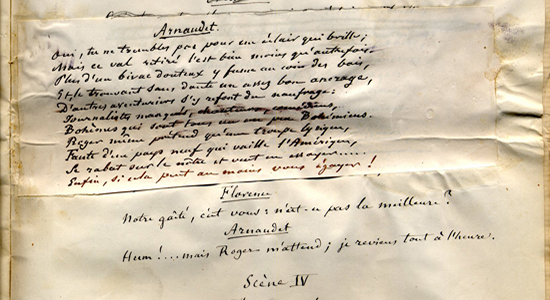 Arnaudet.
Oui, tu ne trembles pas pour un éclair qui brille;
Mais ce val retiré l'est bien moins qu'autrefois
Plus d'un bivac douteux y fume au coin des bois,
Et le trouvant sans doute un assez bon ancrage,
D'autres aventuriers s'y refont du naufrage:
Journalistes manqués, chanteurs, comédiens,
Bohèmes qui sont tous un peu Bohémiens.
Roger même prétend qu'une troupe lyrique,
Faute d'un pays neuf qui vaille l'Amérique,
Se rabat sur le nôtre et veut en essayer....
Enfin, si cela peut au moins vous égayer!
Florence
Notre gaîté, c'est vous: n'est-ce pas la meilleure?
Arnaudet
Hum!... mais Roger m'attend; je reviens tout à l'heure.
Scène IV